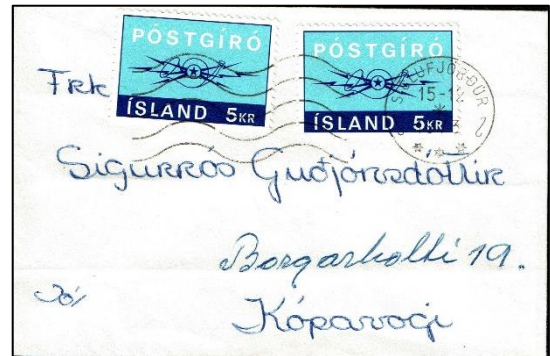 PÓSTGÍRÓ
ÍSLAND 5KR
PÓSTGÍRÓ
ÍSLAND 5KR
SIGLUFJÖRÐUR
15-12
Frk
Sigurrós Guðjónsdóttir
Borgarholti 19.
Kópavogi